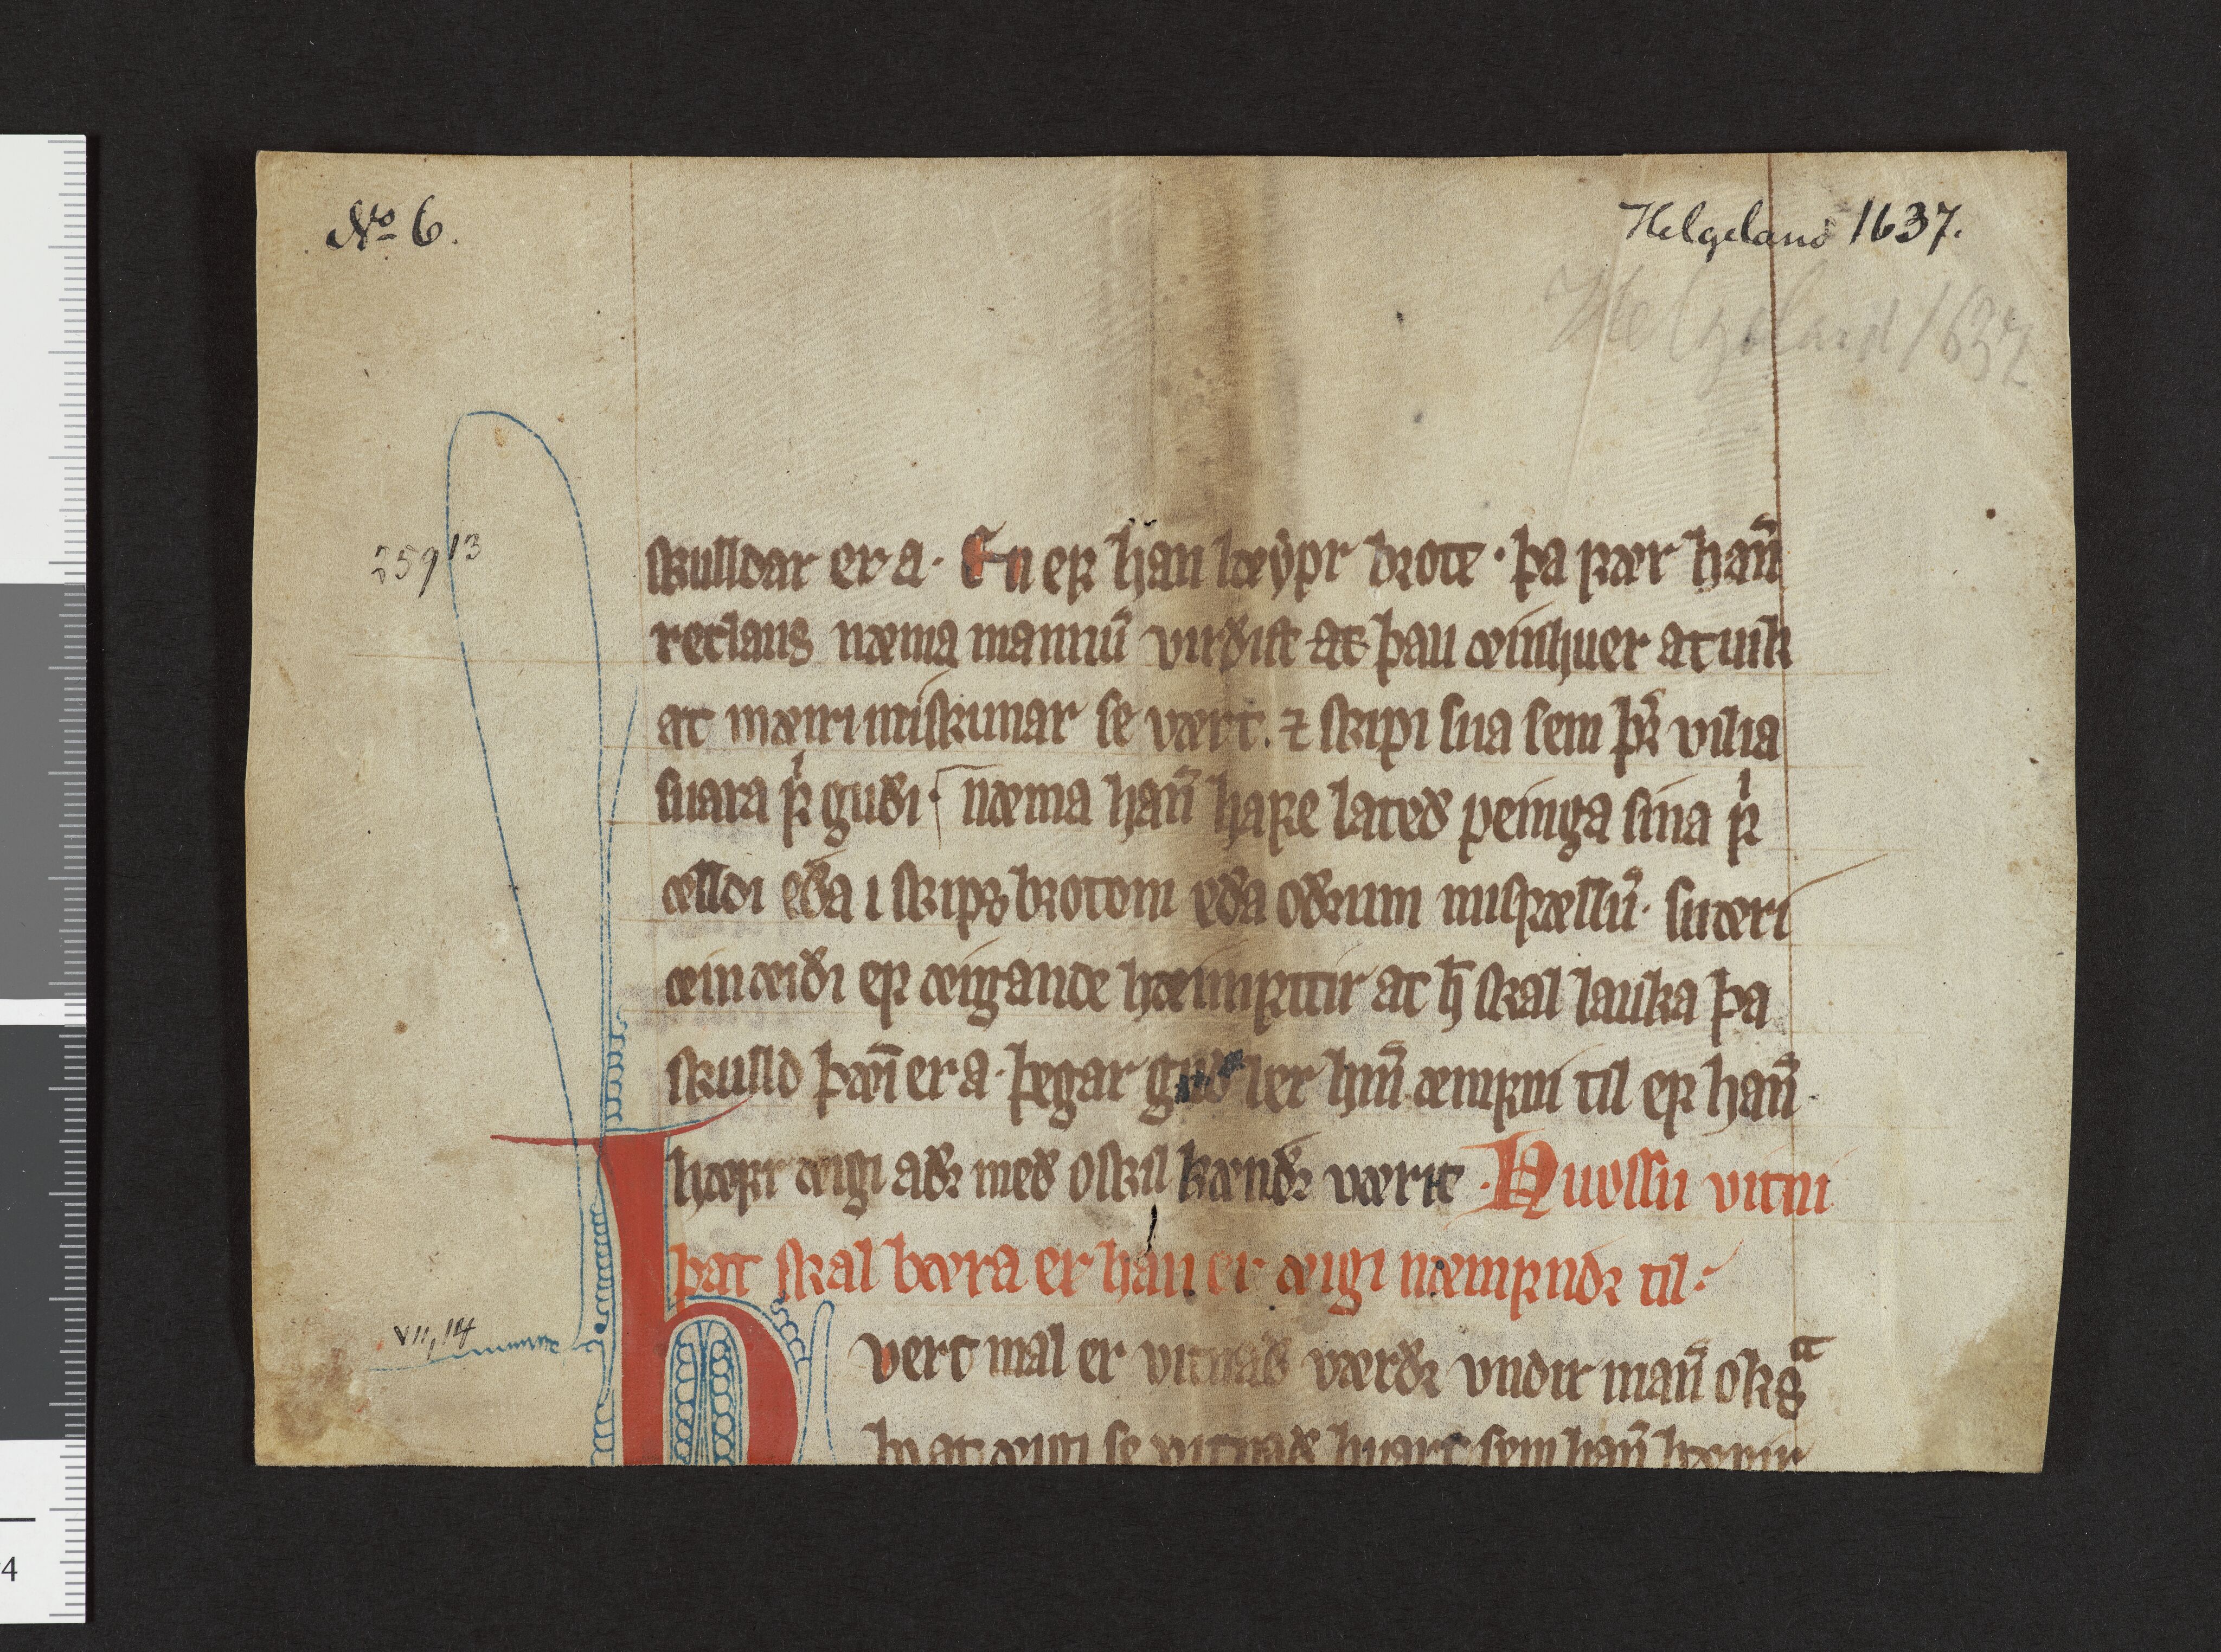 No 6.
Helgeland 1637.
Helgeland 1637
259 13
skulldar er a · En ef han løypr brote · þa fær hañ
retlaus næma mannū virðizt at þau æinhuer atuik
at mæiri miskunar se vært. ⁊ skipi sua sem þr̄ vilia
suara fͥ guði · næma hañ hafe lateð peninga sina fͥ
ælldi eða i skips brotom eða oðrum misfællū · suæri
æin æiði ef æigande hæimptir at ħ skal lauka þa
skulld þæī er a · þegar guð ler hm̄ æmfni til ef hañ
hæfir æigi aðr með oskil kændr værit · Huossu vitni
þat skal bæra er han er æigi næmfndr til ·
VII, 14
hvert mal er vitnað værðr vndir mañ ok gͣ
hvat æigi se vitnað huart sem hañ